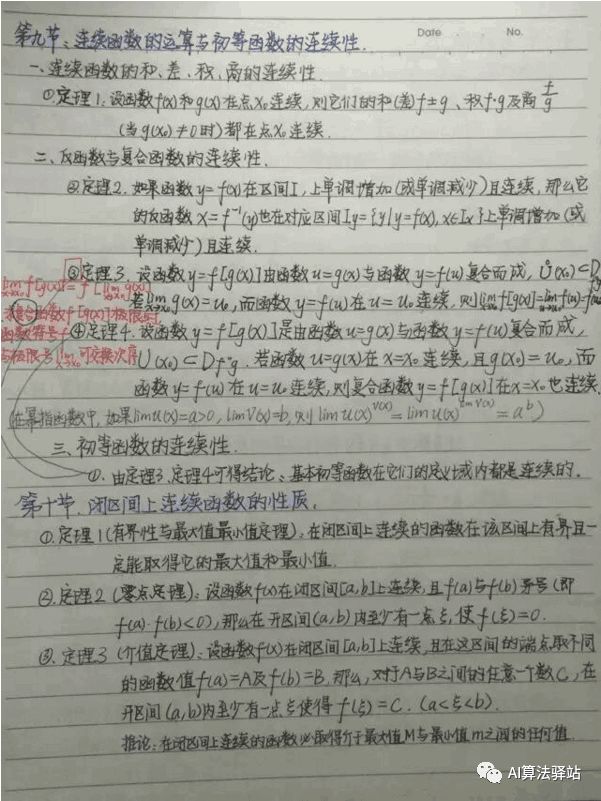 Date    No.
第九节：连续函数的运算与初等函数的连续性.
一、连续函数的和、差、积、商的连续性.
①.定理1：设函数f(x)和g(x)在点x₀连续，则它们的和(差)f±g、积f·g及商f/g
(当g(x₀)≠0时)都在点x₀连续.
二、反函数与复合函数的连续性、
②定理2. 如果函数y=f(x)在区间Iₓ上单调增加(或单调减少)且连续，那么它
的反函数x=f⁻¹(y)也在对应区间Iy={y|y=f(x), x∈Iₓ}上单调增加(或
单调减少)且连续.
③定理3. 设函数y=f[g(x)]由函数u=g(x)与函数y=f(u)复合而成，Ů(x₀)⊂D
若lim g(x)=u₀，而函数y=f(u)在u=u₀连续，则lim f[g(x)]=lim f(u)=f(u₀)
lim f[g(x)]=f[lim g(x)]
求复合函数f[g(x)]极限时
函数符号f
与极限号lim可交换次序
④定理4. 设函数y=f[g(x)]是由函数u=g(x)与函数y=f(u)复合而成，
U(x₀)⊂Df∘g. 若函数u=g(x)在x=x₀连续，且g(x₀)=u₀，而
函数y=f(u)在u=u₀连续，则复合函数y=f[g(x)]在x=x₀也连续.
(在幂指函数中，如果lim u(x)=a>0, lim v(x)=b, 则lim u(x)^v(x)=lim u(x)^lim v(x)=a^b)
三、初等函数的连续性.
①. 由定理3、定理4可得结论：基本初等函数在它们的定义域内都是连续的.
第十节. 闭区间上连续函数的性质.
①.定理1(有界性与最大值最小值定理)：在闭区间上连续的函数在该区间上有界且一
定能取得它的最大值和最小值.
②.定理2(零点定理)：设函数f(x)在闭区间[a,b]上连续，且f(a)与f(b)异号(即
f(a)·f(b)<0)，那么在开区间(a,b)内至少有一点ξ，使f(ξ)=0.
③.定理3(介值定理)：设函数f(x)在闭区间[a,b]上连续，且在这区间的端点取不同
的函数值f(a)=A及f(b)=B，那么，对于A与B之间的任意一个数C，在
开区间(a,b)内至少有一点ξ使得f(ξ)=C. (a<ξ<b).
推论：在闭区间上连续的函数必取得介于最大值M与最小值m之间的任何值.
AI算法驿站